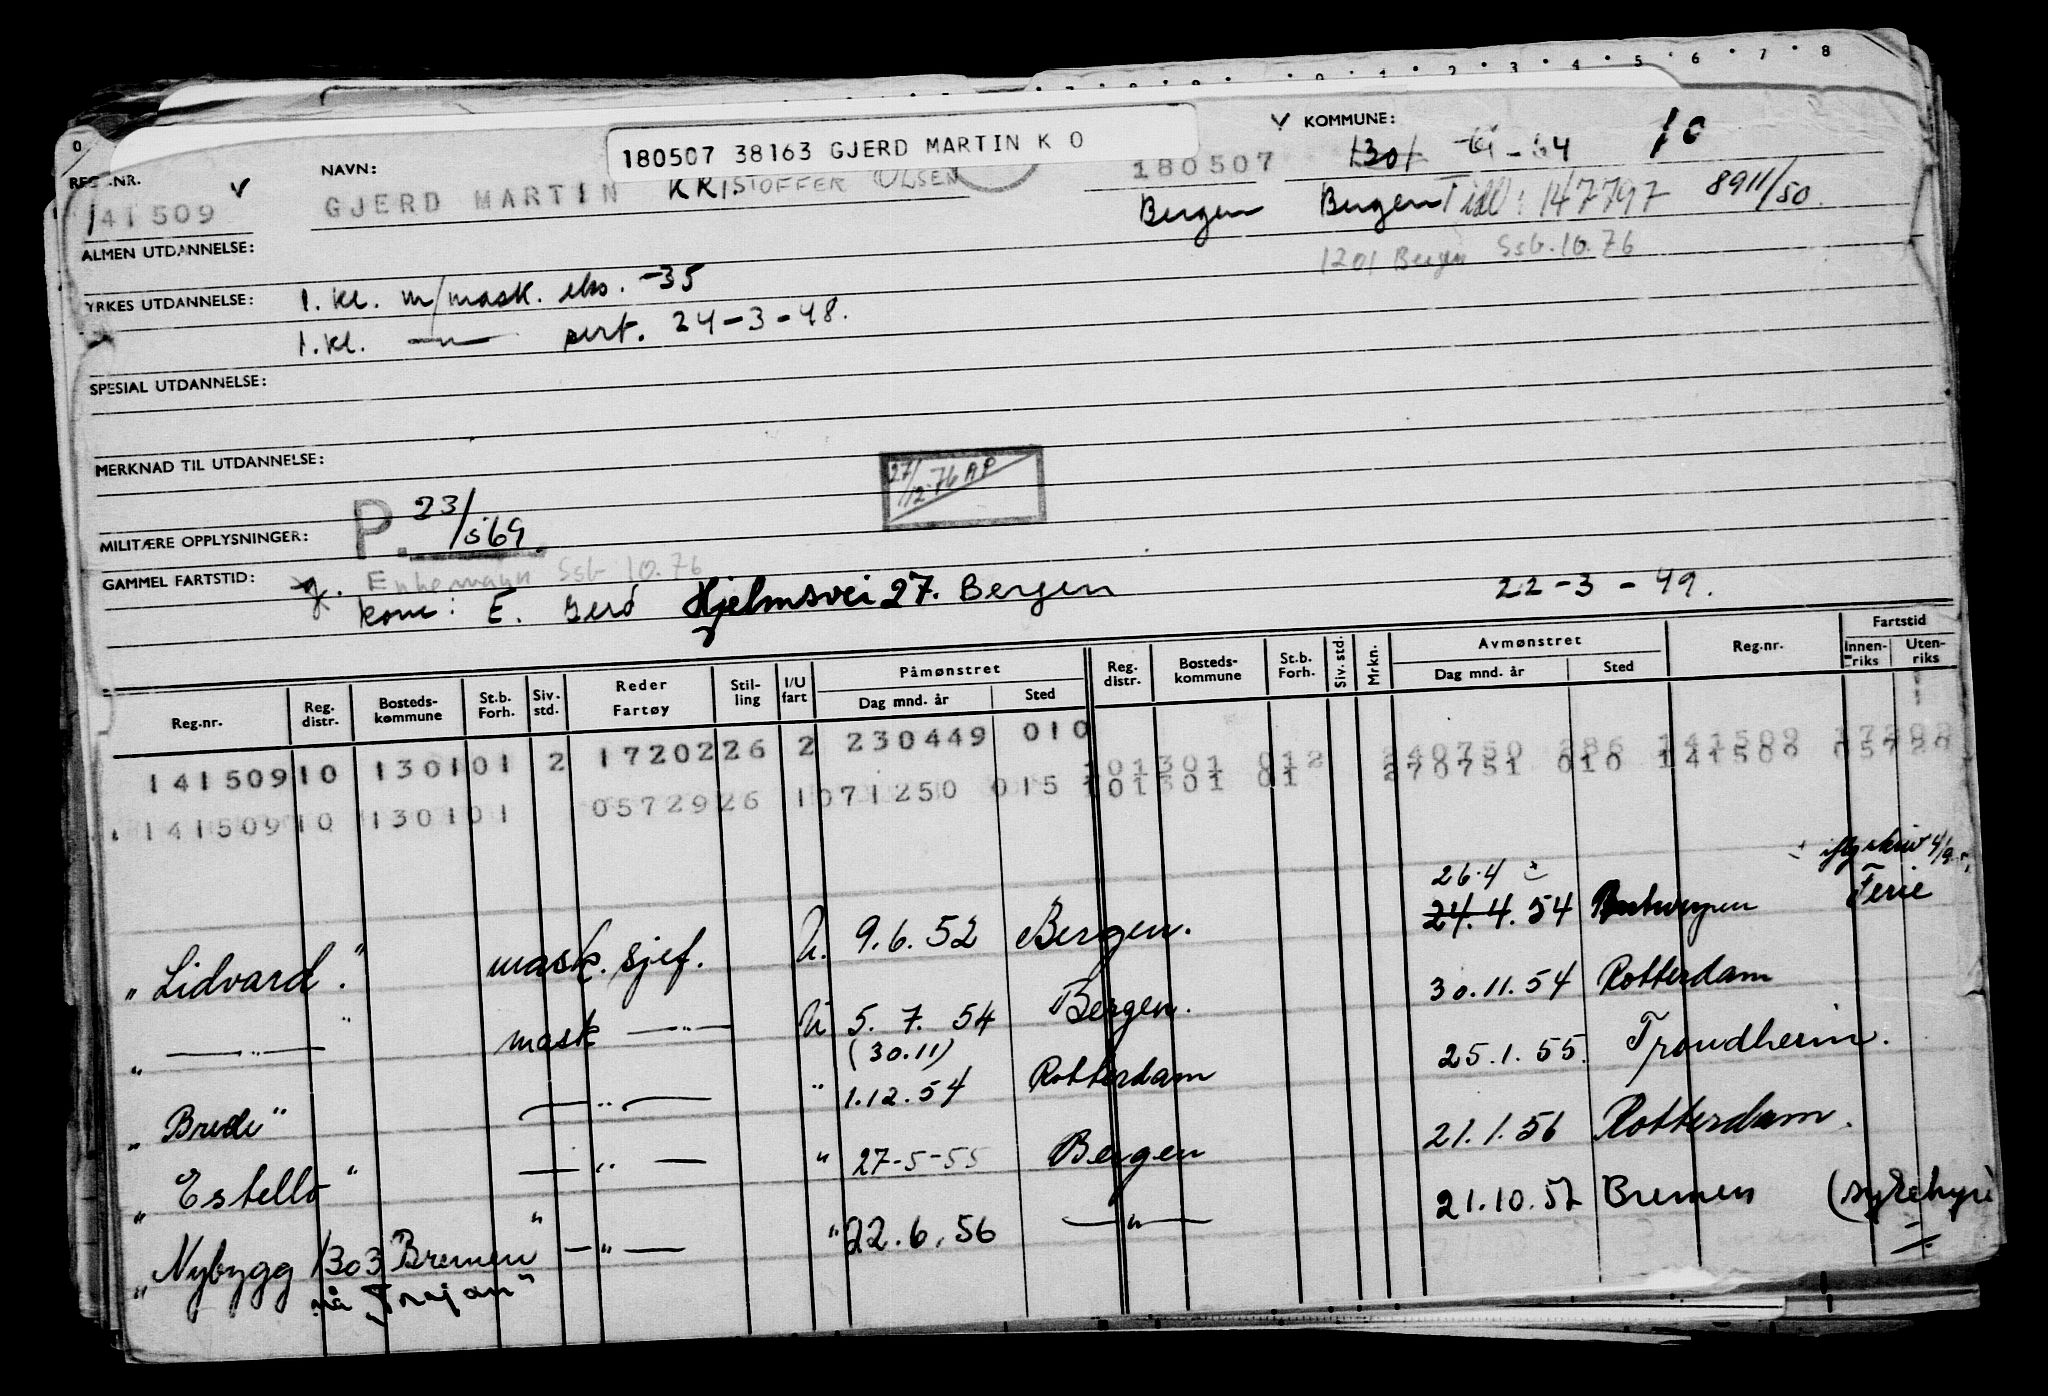 0 1 2 3 4 5 6 7 8
180507 38163 GJERD MARTIN K O
REG.NR. NAVN: KOMMUNE:
141509 GJERD MARTIN KRISTOFFER OLSEN 180507 1301 -64 10
Bergen Bergen Tidl: 147797 8911/50
ALMEN UTDANNELSE: 1201 Bergen Ssb. 10.76
YRKES UTDANNELSE: 1. kl. m/mask. eks. -35
1. kl. —"— sert. 24-3-48.
SPESIAL UTDANNELSE:
MERKNAD TIL UTDANNELSE:
27/12-76 AP
MILITÆRE OPPLYSNINGER: P. 23/5 69.
GAMMEL FARTSTID: g. Enkemann Ssb 10.76
kone: E. Gerd Hjelmsvei 27. Bergen 22-3-49.
Reg.nr. Reg. distr. Bosteds-kommune St.b. Forh. Siv. std. Reder Fartøy Stil-ling I/U fart Påmønstret Dag mnd. år Sted Reg. distr. Bosteds-kommune St.b. Forh. Siv. std. Mrkn. Avmønstret Dag mnd. år Sted Reg.nr. Fartstid Innen-riks Uten-riks
141509 10 1301 01 2 17202 26 2 230449 010 101301 012 240750 286 141509
141509 10 1301 01 05729 26 1 071250 015 101301 01 270751 010 141509 05729
26.4
"Lidvard." mask. sjef. U. 9.6.52 Bergen. 24.4.54 Antwerpen Ferie
" —"— " mask —"— U 5.7.54 Bergen. 30.11.54 Rotterdam
(30.11)
"Brede" —"— " 1.12.54 Rotterdam 25.1.55. Trondheim.
"Estello" —"— " 27-5-55 Bergen 21.1.56 Rotterdam.
"Nybygg 1303 Bremen" —"— " 22.6.56 —"— 21.10.57 Bremen (sykehyre)
nå Trajan"